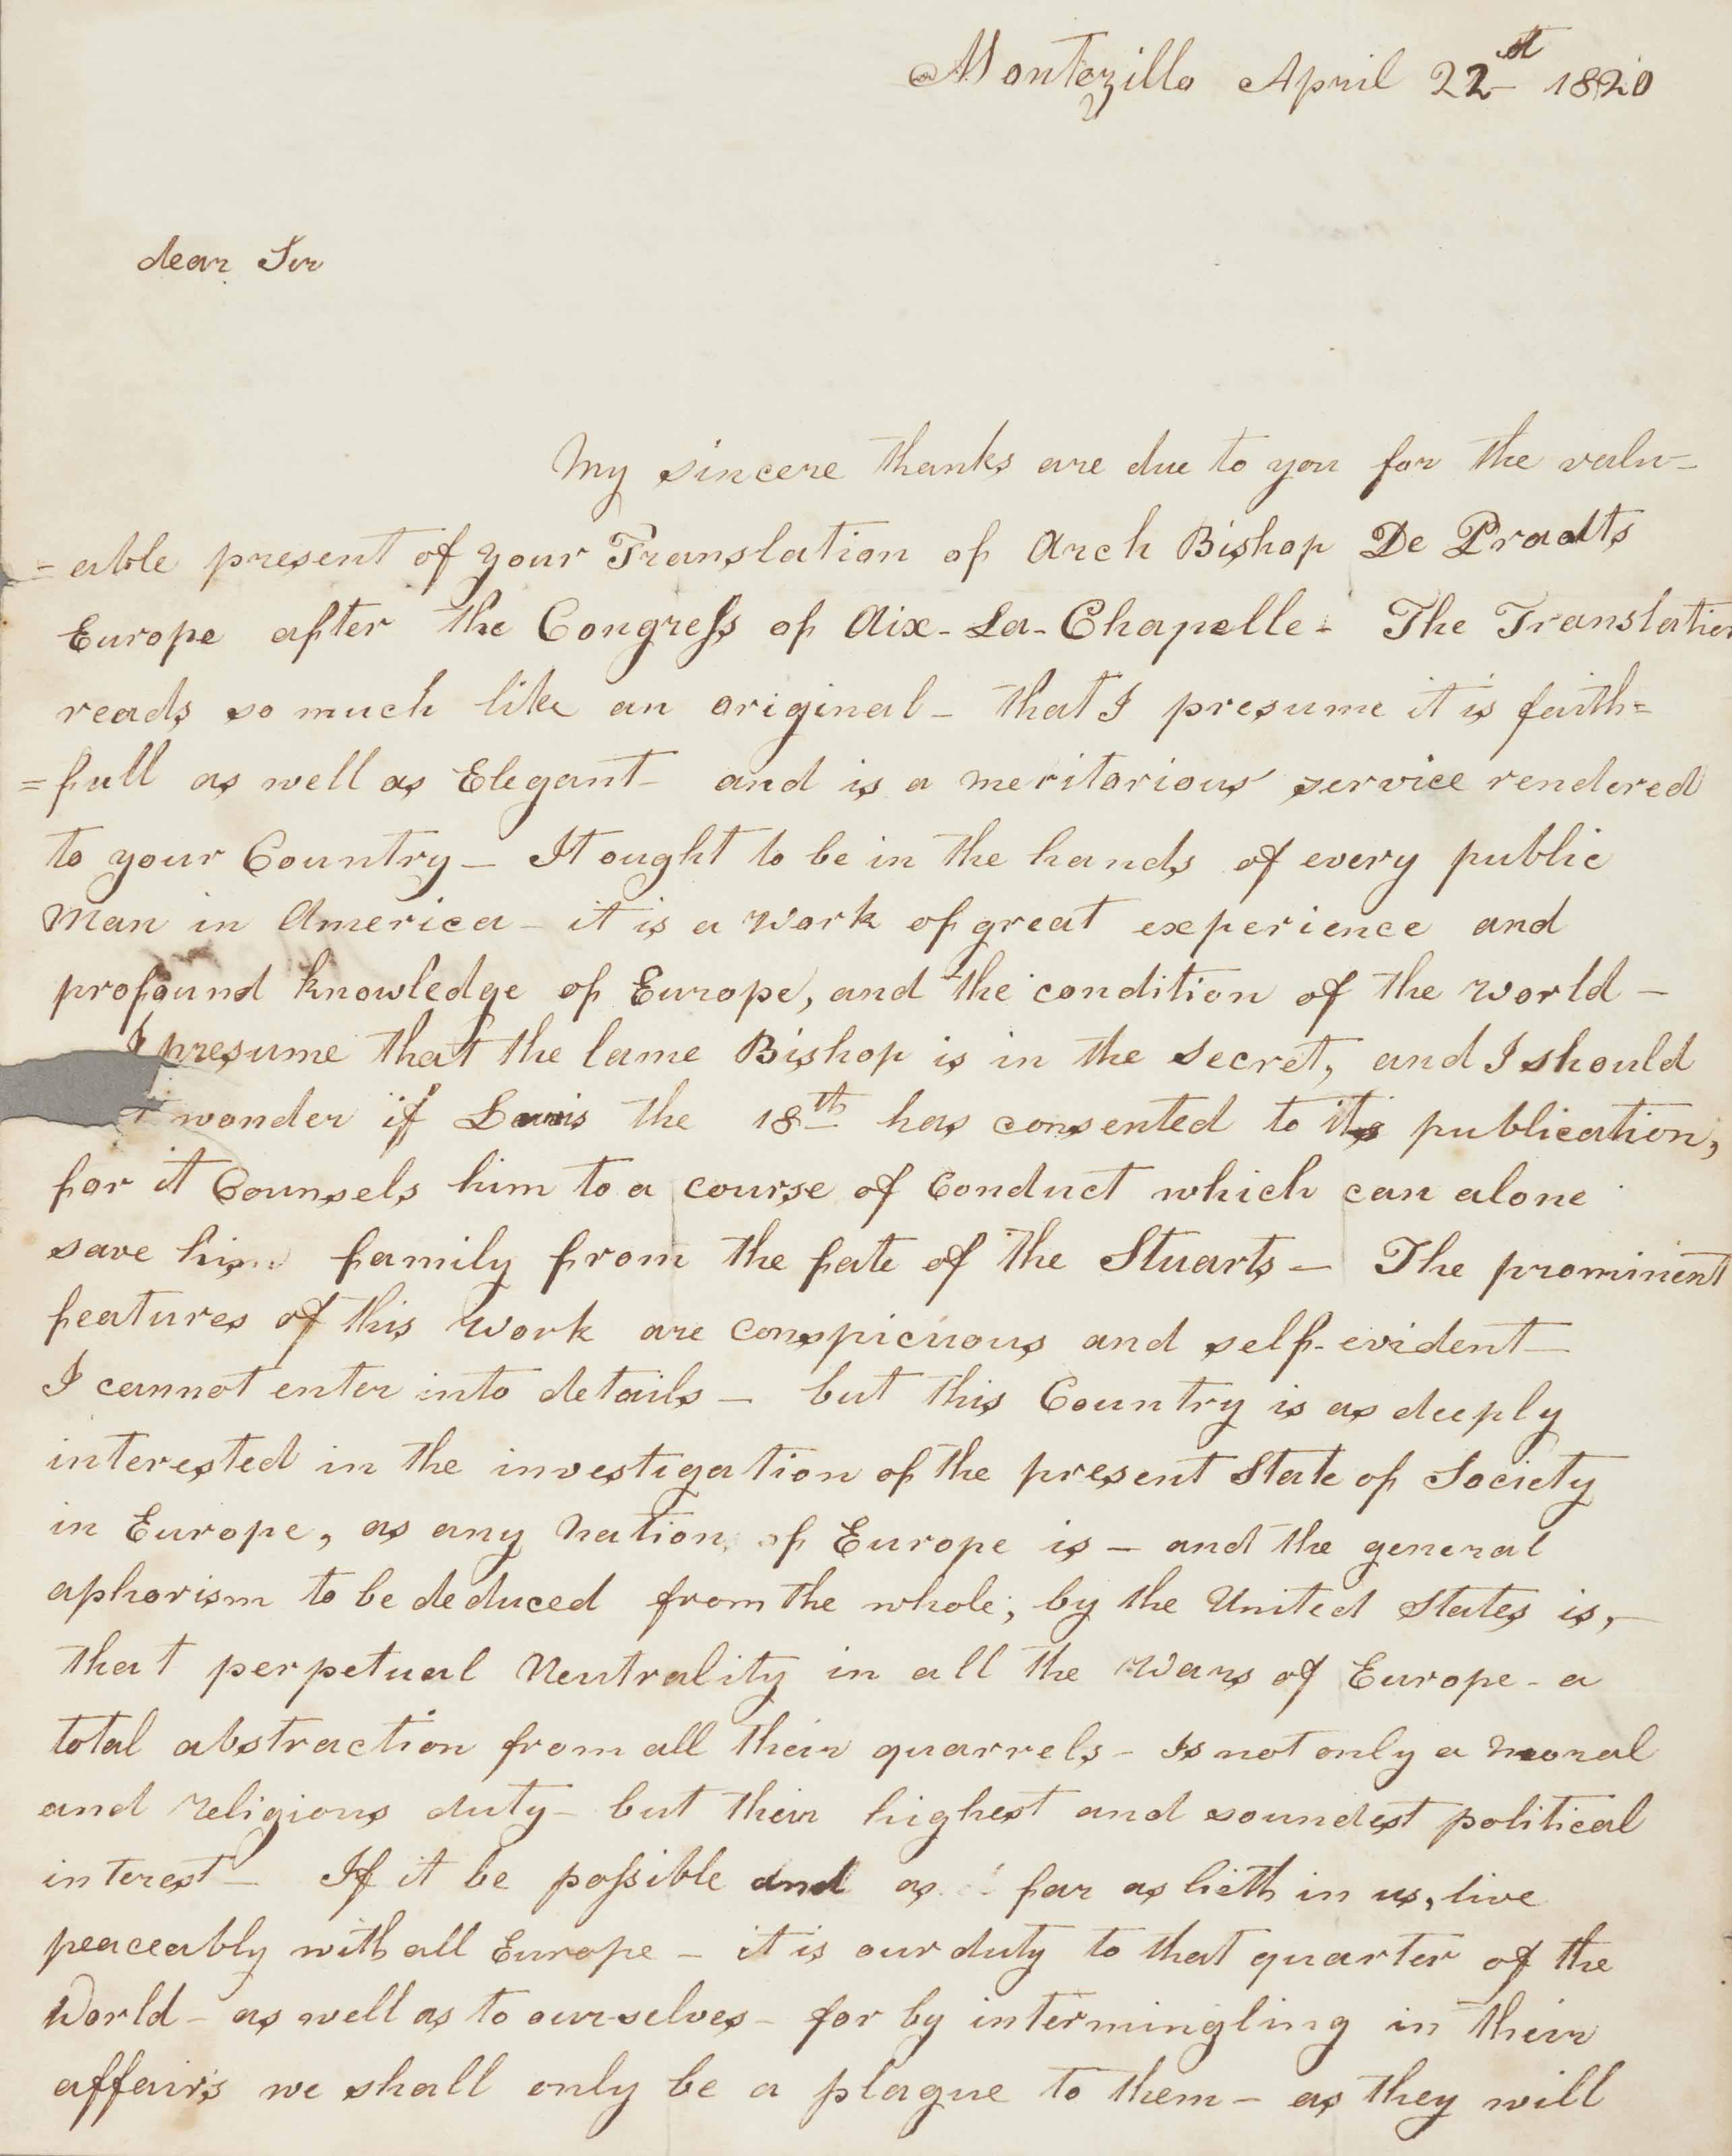 Montezillo April 22st 1820
dear Sir
My sincere thanks are due to you for the valu-
=able present of your Translation of Arch Bishop De Pradts
Europe after the Congress of Aix-La-Chapelle- The Translation
reads so much like an original - that I presume it is faith=
=full as well as Elegant- and is a meritorious service rendered
to your Country- It ought to be in the hands of every public
Man in America- it is a work of great experience and
profound knowledge of Europe, and the condition of the world -
I presume that the lame Bishop is in the secret, and I should
wonder if Louis the 18th has consented to its publication,
for it Counsels him to a course of Conduct which can alone
save his family from the fate of the Stuarts - The prominent
features of this work are conspicuous and self-evident-
I cannot enter into details - but this Country is as deeply
interested in the investigation of the present State of Society
in Europe, as any Nation of Europe is - and the general
aphorism to be deduced from the whole; by the United States is,-
that perpetual Neutrality in all the Wars of Europe - a
total abstraction from all their quarrels - Is not only a moral
and religious duty- but their highest and soundest political
interest- If it be possible and as far as lieth in us, live
peaceably with all Europe - it is our duty to that quarter of the
World - as well as to ourselves - for by intermingling in their
affairs we shall only be a plague to them - as they will